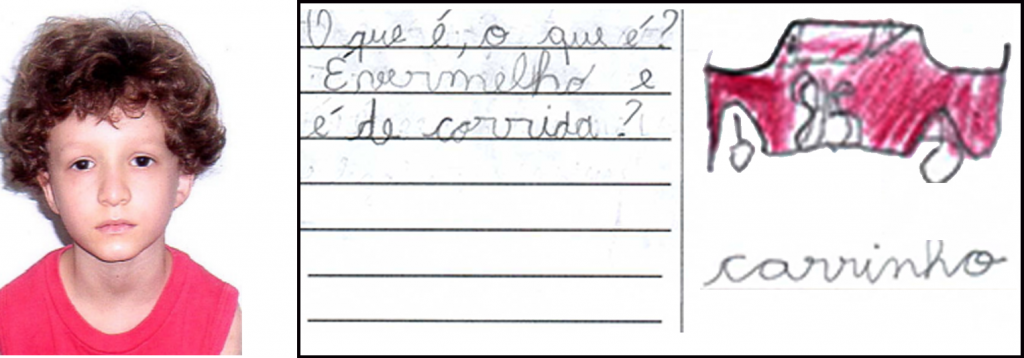 O que é, o que é?
É vermelho e
é de corrida?
86
carrinho